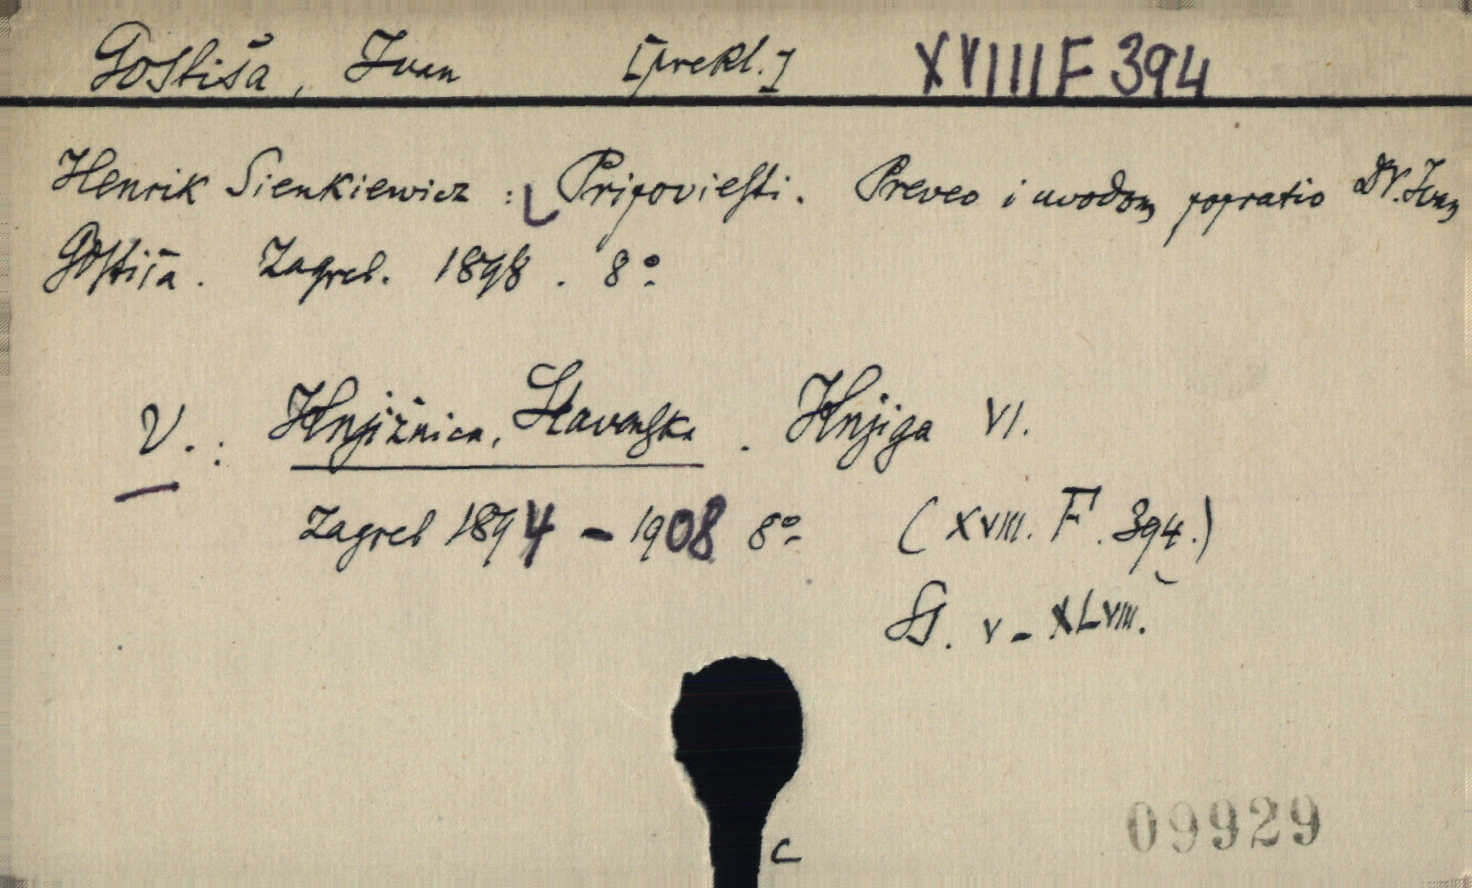 Gostiša, Ivan [prekl.] XVIII F 394
Henrik Sienkiewicz : Pripoviesti. Preveo i uvodom popratio Dr. Ivan
Gostiša. Zagreb. 1898. 8º
V. : Knjižnica, Slavenska. Knjiga VI.
Zagreb 1894 - 1908 8º (XVIII. F. 394.)
V - XLVIII.
C
09929